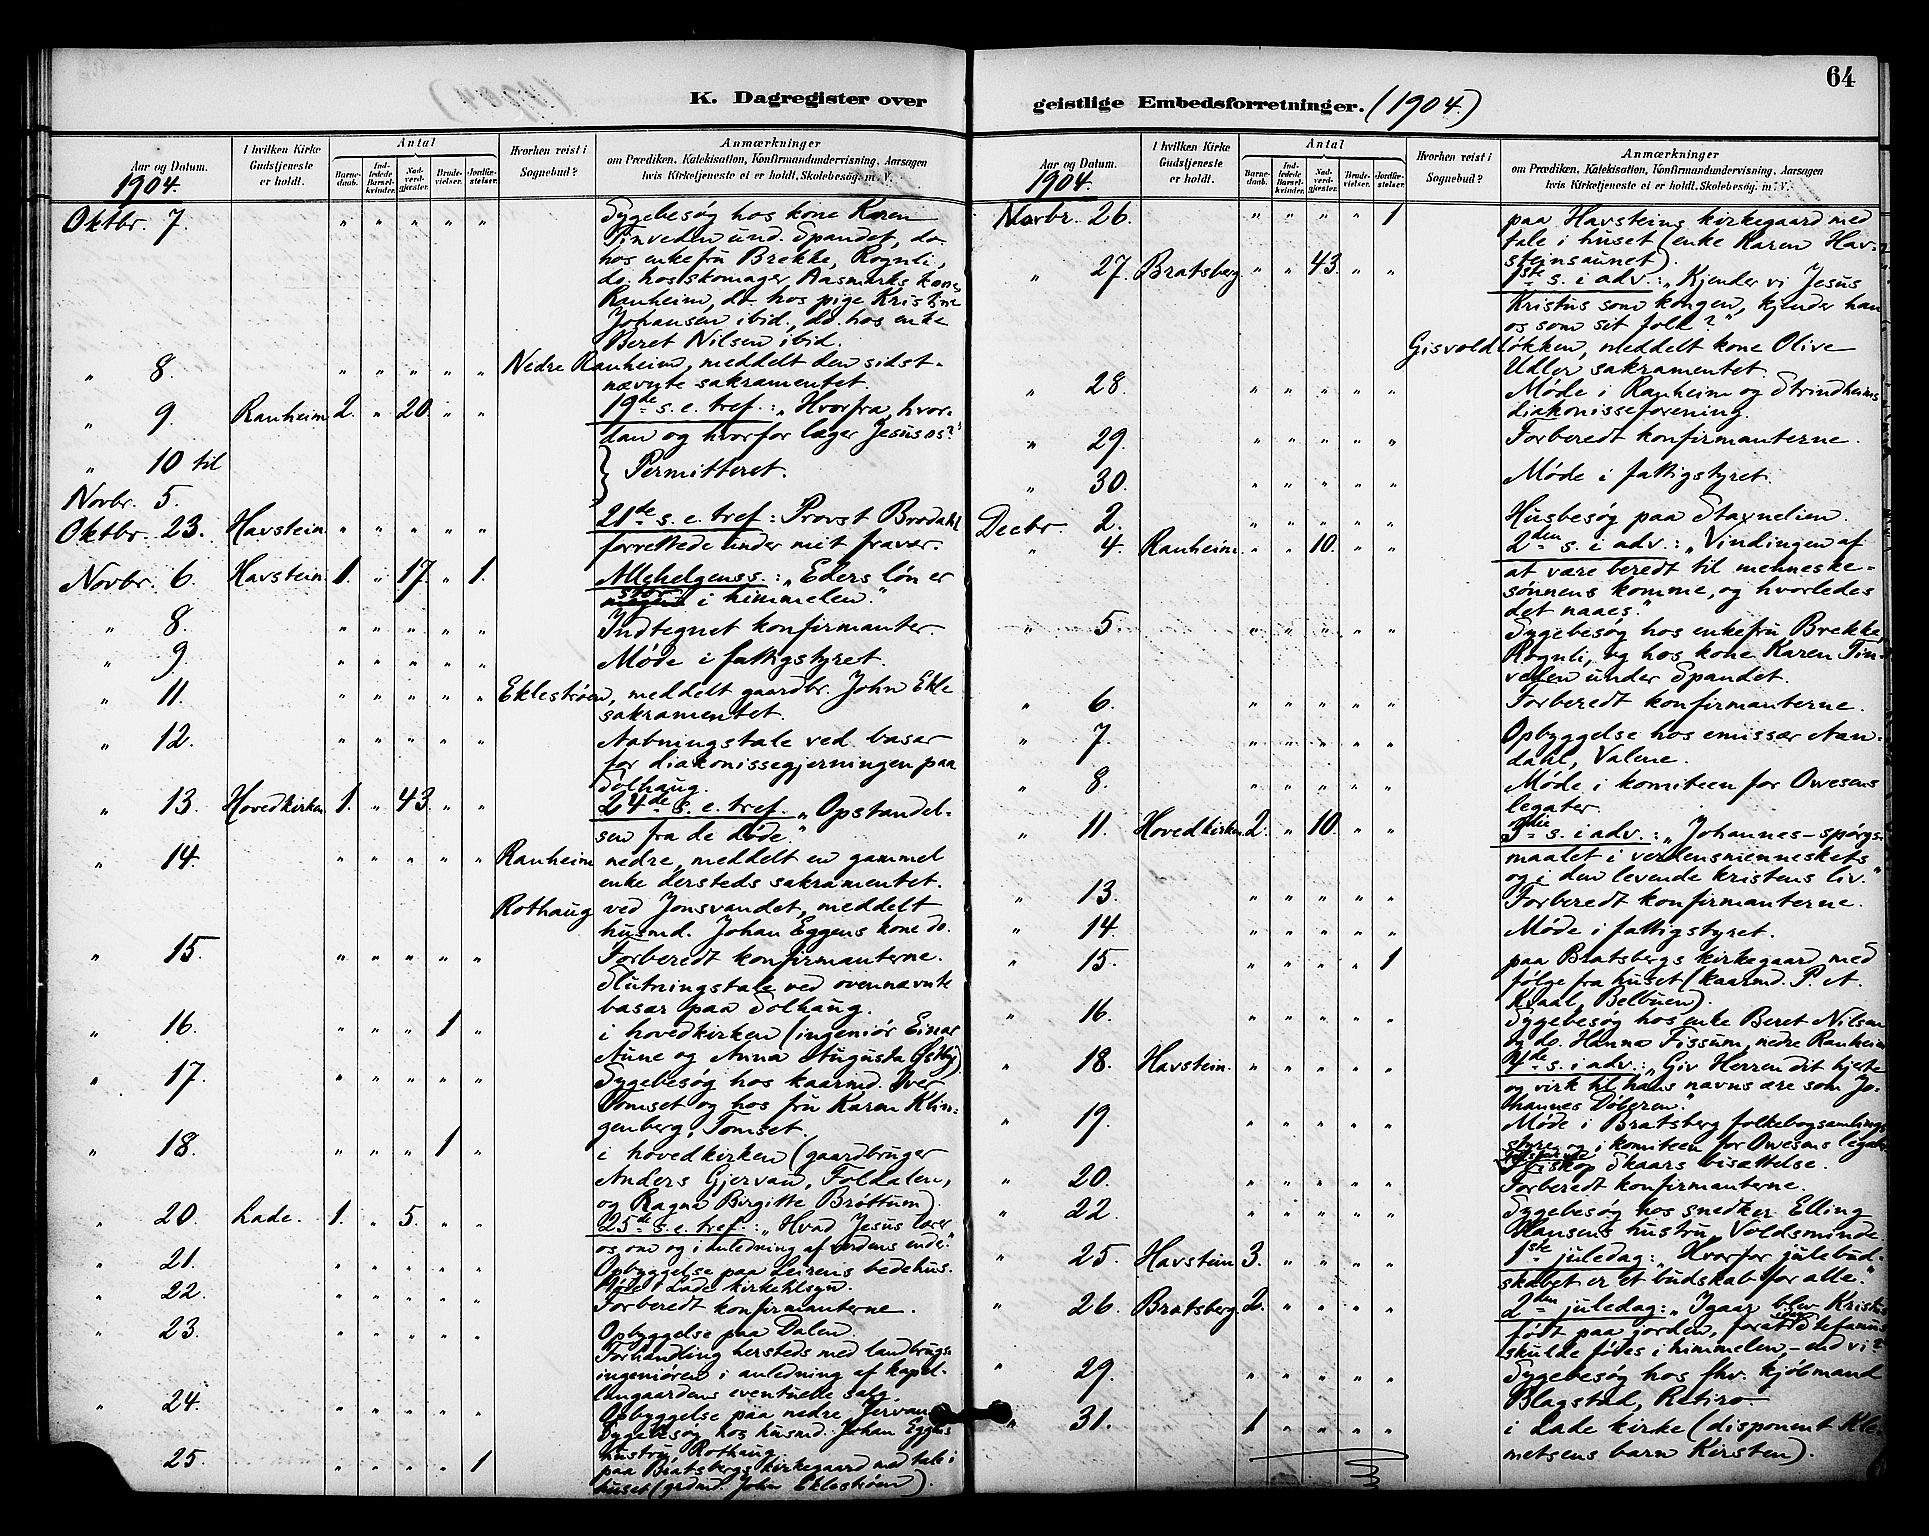 K. Dagregister over
Antal
Aar og Datum.
I hvilken Kirke Gudstjeneste er holdt.
Barnedaab.
Indledede Barselkvinder.
Nadverdgjester.
Brudevielser.
Jordfæstelser.
Hvorhen reist i Sognebud?
Anmærkninger
om Prædiken, Katekisation, Konfirmandundervisning, Aarsagen
hvis Kirketjeneste ei er holdt, Skolebesøg m. V.
1904.
Oktbr. 7. " " " " " Sygebesøg hos kone Karen
Tinveden und. Spandet, do.
hos enkefru Brekke, Rognli,
do. hos skomager Aasmarks kone,
Ranheim, do. hos pige Kristine
Johansen ibid., do. hos enke
Beret Nilsen ibid.
" 8. " " " " " Nedre Ranheim, meddelt den sidst-
nævnte sakramentet.
" 9. Ranheim 2. " 20. " " 19de s. e. tref.: "Hvorfra, hvor-
dan og hvorfor læger Jesus os?"
" 10 til
Permitteret.
Novbr. 5.
Oktbr. 23. Havstein. " " " " " 21de s. e. tref: Provst Brodahl
forrettede under mit fravær.
Novbr. 6. Havstein. 1. " 17. " 1. Allehelgenss.: "Eders løn er
stor
i himmelen"
" 8. " " " " " Indtegnet konfirmanter.
" 9. " " " " " Møde i fattigstyret.
" 11. " " " " " Eklestrøen, meddelt gaardbr. John Ekle
sakramentet.
" 12. " " " " " Aabningstale ved basar
for diakonissegjerningen paa
Solhaug.
" 13. Hovedkirken 1. " 43. " " 24de s. e. tref. "Opstandel-
sen fra de døde."
" 14. " " " " " Ranheim nedre, meddelt en gammel
enke dersteds sakramentet.
Rothaug ved Jonsvandet, meddelt
husmd. Johan Eggens kone do.
" 15. " " " " " Forberedt konfirmanterne.
Slutningstale ved ovennævnte
basar paa Solhaug.
" 16. " " " 1 " i hovedkirken (ingeniør Einar
Aune og Anna Augusta Østby)
" 17. " " " " " Sygebesøg hos kaarmd. Iver
Tomset og hos fru Karen Klin-
genberg, Tomset.
" 18. " " " 1 " i hovedkirken (gaardbruger
Anders Gjervan, Foldalen,
og Ragna Birgitte Brøttum).
" 20. Lade. 1. " 5. " " 25de s. e. tref.: "Hvad Jesus lærer
os om og i anledning af verdens ende."
" 21. " " " " " Opbyggelse paa Leirens bedehus.
Møde i Lade kirketilsyn.
" 22. " " " " " Forberedt konfirmanterne.
" 23. " " " " " Opbyggelse paa Dalen.
Forhandling hersteds med landbrugs-
ingeniøren i anledning af kapel-
langaardens eventuelle salg.
" 24. " " " " " Opbyggelse paa nedre Jervan.
Sygebesøg hos husmd. Johan Eggens
hustru, Rothaug.
" 25. " " " " 1 paa Bratsbergs kirkegaard med tale i
huset (grdmd. John Eklestrøen).
64
geistlige Embedsforretninger. (1904.)
Antal
Aar og Datum.
I hvilken Kirke Gudstjeneste er holdt.
Barnedaab.
Indledede Barselkvinder.
Nadverdgjester.
Brudevielser.
Jordfæstelser.
Hvorhen reist i Sognebud?
Anmærkninger
om Prædiken, Katekisation, Konfirmandundervisning, Aarsagen
hvis Kirketjeneste ei er holdt. Skolebesøg m. V.
1904.
Novbr. 26. " " " " 1 paa Havsteins kirkegaard med
tale i huset (enke Karen Hav-
steinsaunet).
" 27. Bratsberg. " " 43. " " 1ste s. i adv.: "Kjender vi Jesus
Kristus som kongen, kjender han
os som sit folk?"
Gisvoldløkken, meddelt kone Olive
Udler sakramentet.
" 28. " " " " " Møde i Ranheim og Strindheims
diakonisseforening.
" 29. " " " " " Forberedt konfirmanterne.
" 30. " " " " " Møde i fattigstyret.
Decbr 2. " " " " " Husbesøg paa Staxnelien.
" 4. Ranheim. " " 10. " " 2den s. i adv.: "Vindingen af
at være beredt til menneske-
sønnens komme, og hvorledes
det naaes."
" 5. " " " " " Sygebesøg hos enkefru Brekke,
Rognli, og hos kone Karen Tin-
veden under Spandet.
" 6. " " " " " Forberedt konfirmanterne.
" 7. " " " " " Opbyggelse hos emissær Aan-
dahl, Valene.
" 8. " " " " " Møde i komiteen for Owesens
legater.
" 11. Hovedkirken 2. " 10. " " 3die s. i adv.: "Johannes-spørgs-
maalet i verdensmenneskets
og i den levende kristens liv."
" 13. " " " " " Forberedt konfirmanterne.
" 14. " " " " " Møde i fattigstyret.
" 15. " " " " 1 paa Bratsbergs kirkegaard med
følge fra huset (kaarmd. P. A.
Kvaal, Belbuen).
" 16. " " " " " Sygebesøg hos enke Beret Nilsen
og do. Hanna Fissum, nedre Ranheim
" 18. Havstein. " " " " " 4de s. i adv.: "Giv Herren dit hjerte
og virk til hans navns ære som Jo-
hannes Døberen."
" 19. " " " " " Møde i Bratsberg folkebogsamlings
styre og i komiteen for Owesens legater
Biskop Skaars bisættelse.
" 20. " " " " " Forberedt konfirmanterne.
" 22. " " " " " Sygebesøg hos snedker Elling
Hansens hustru, Voldsminde.
" 25. Havstein 3. " " " " 1ste juledag: "Hvorfor julebud-
skabet er et budskab for alle."
" 26. Bratsberg. 2. " " " " 2den juledag: "Igaar blev Kristus
født paa jorden, forat Stefanus idag
skulde fødes i himmelen, - end vi?"
" 29. " " " " " Sygebesøg hos fhv. kjøbmand
Blagstad, Retiro.
" 31. 1 " " " " i Lade kirke (disponent Kle-
metsens barn Kirsten).